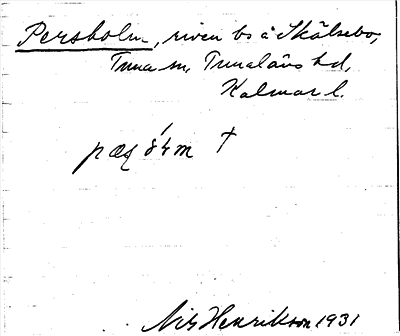 Persholm, riven bs å Skälsebo,
Tuna sn, Tunaläns hd,
Kalmar l.
pæʂ ô´l m †
Nils Henrikson 1931